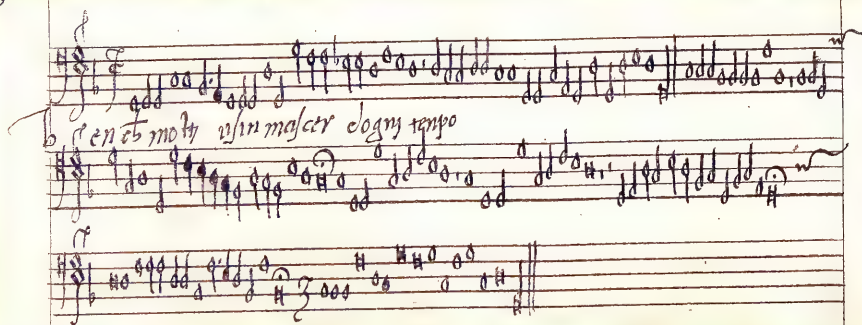 Ben ch moltj usin mascer dognj tenpo